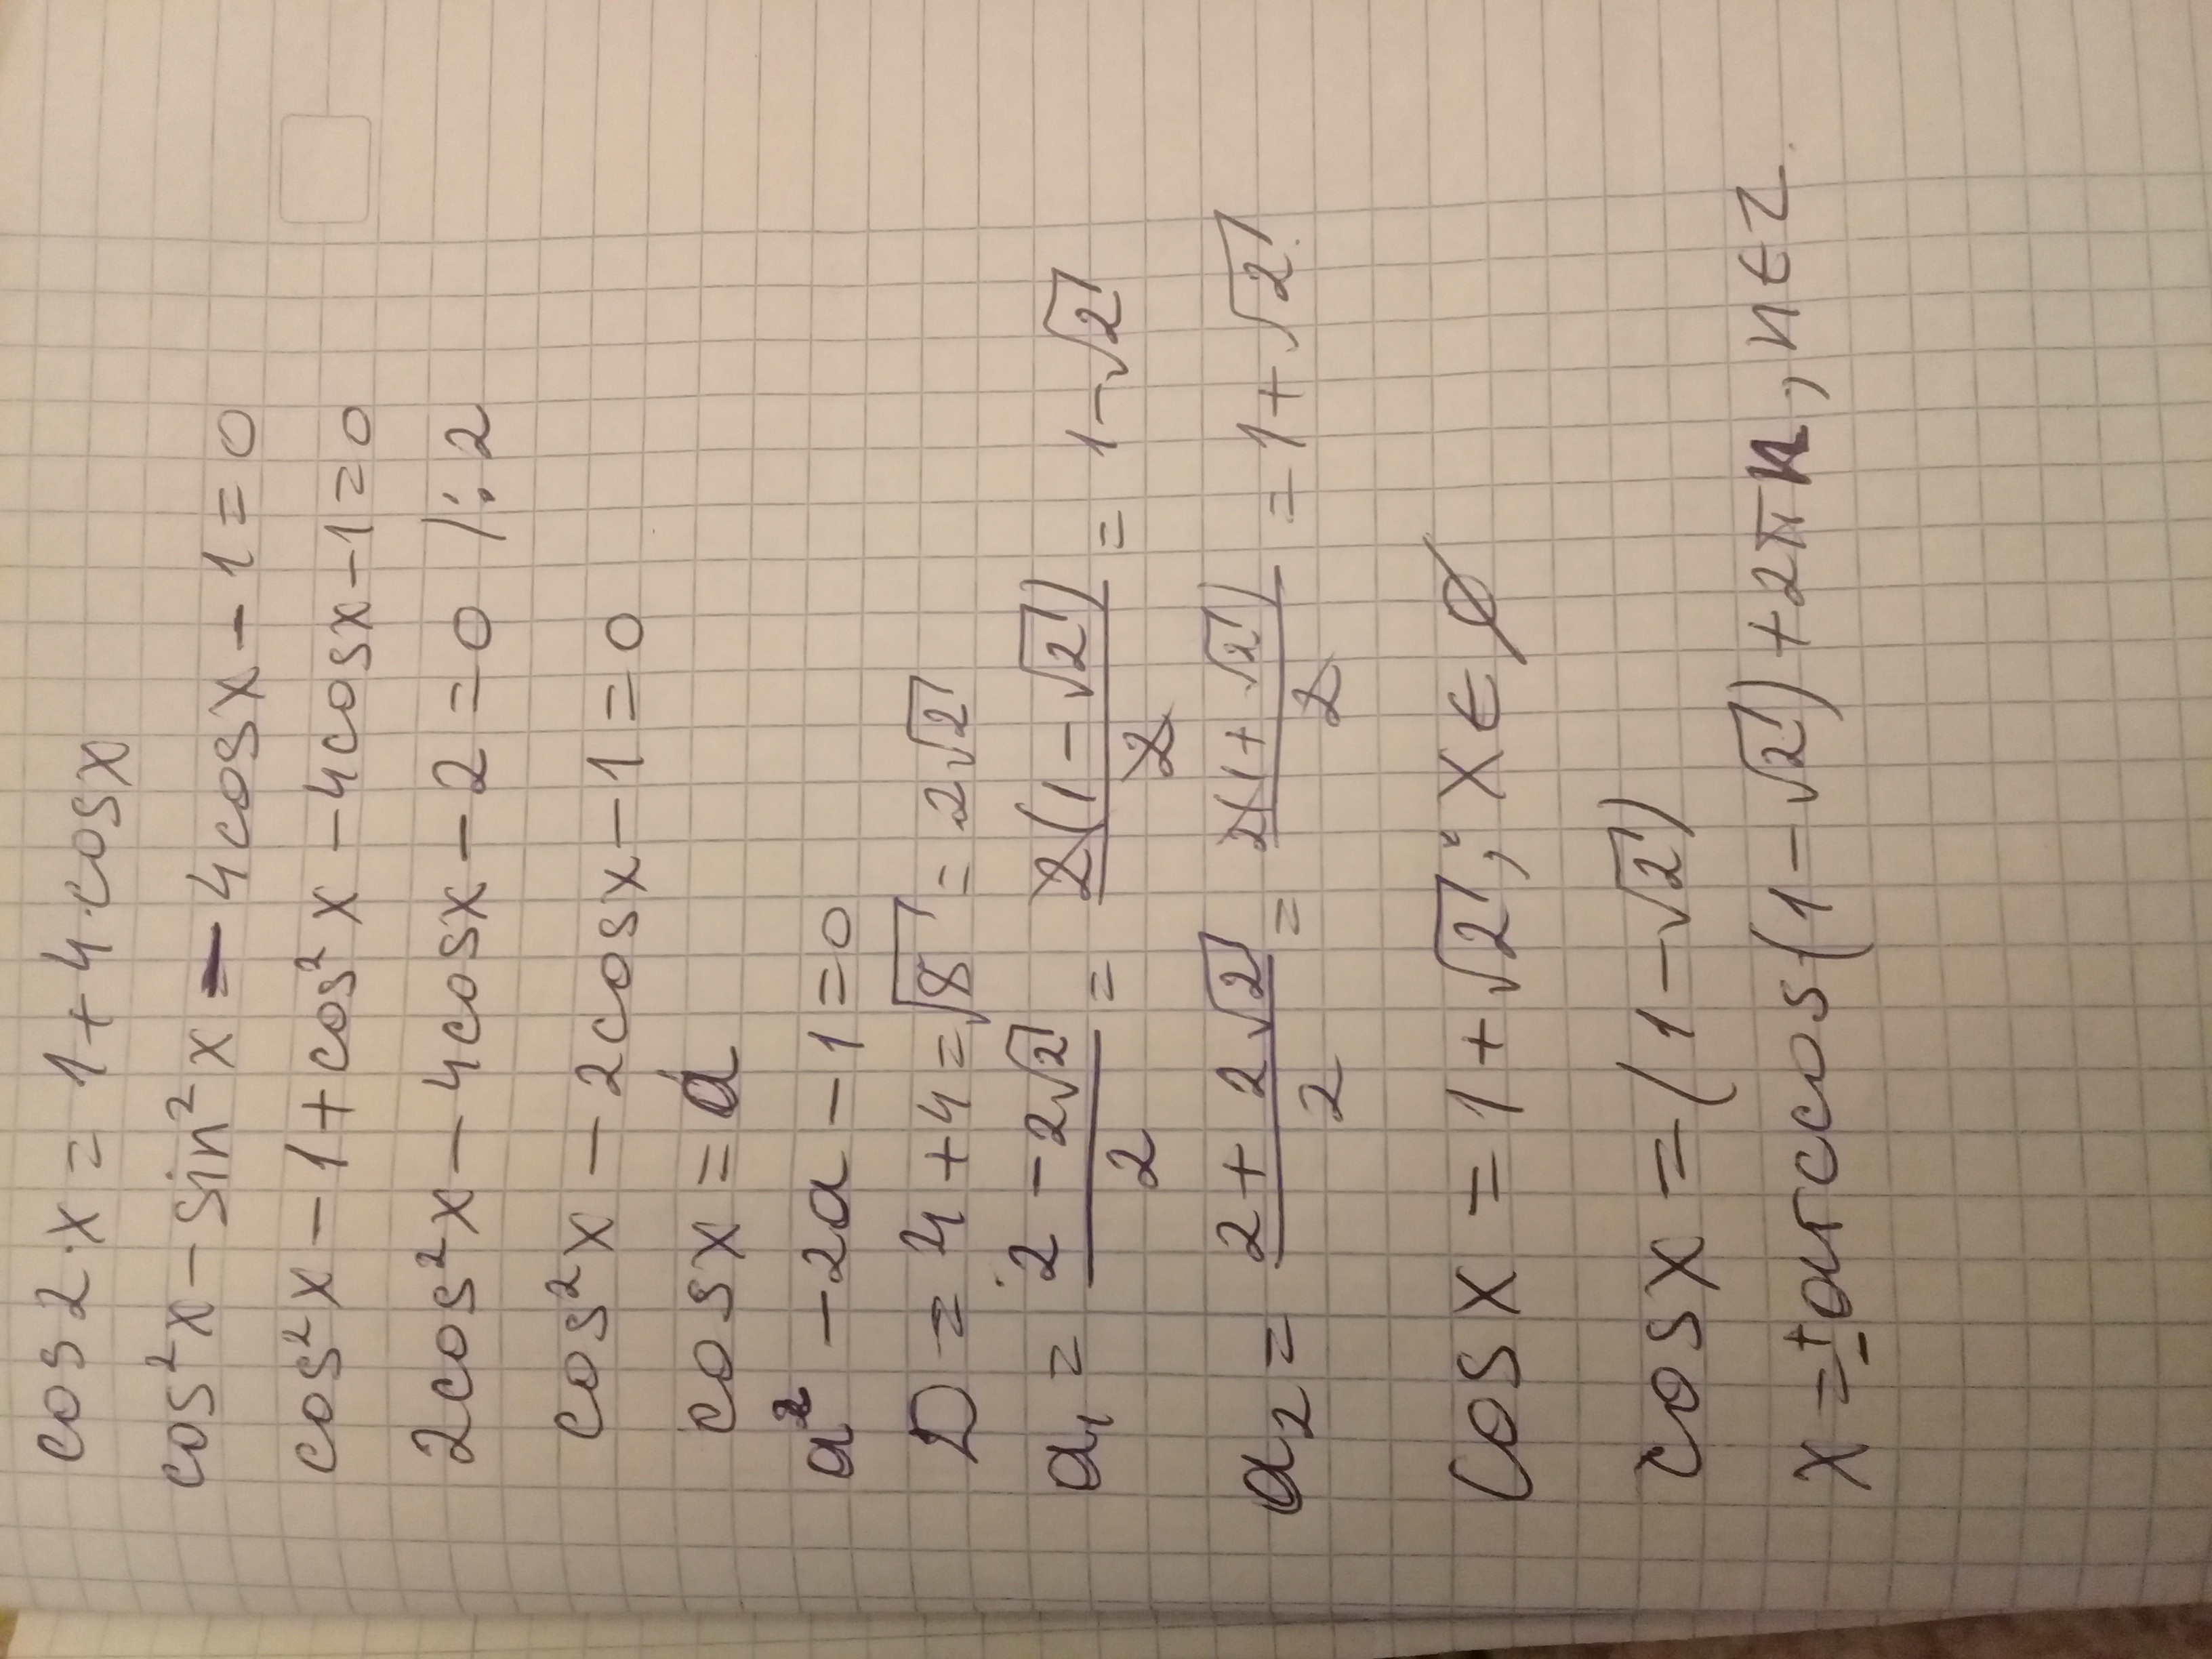 cos 2·x = 1 + 4·cos x
cos²x − sin²x − 4cosx − 1 = 0
cos²x − 1 + cos²x − 4cosx − 1 = 0
2cos²x − 4cosx − 2 = 0 /:2
cos²x − 2cosx − 1 = 0
cosx = a
a² − 2a − 1 = 0
D = 4 + 4 = √8 = 2√2
a₁ = (2 − 2√2)/2 = 2(1 − √2)/2 = 1 − √2
a₂ = (2 + 2√2)/2 = 2(1 + √2)/2 = 1 + √2
cos x = 1 + √2; x ∈ ∅
cos x = (1 − √2)
x = ± arccos(1 − √2) + 2πn, n ∈ Z.